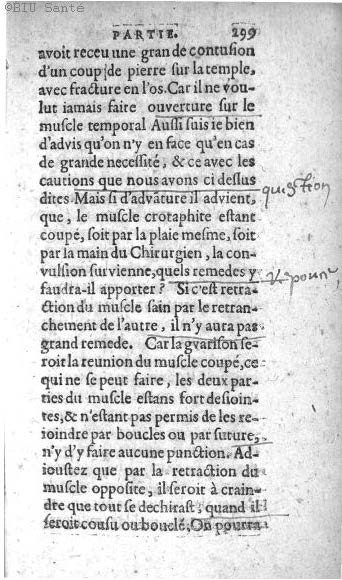 ©BIU Santé
PARTIE. 299
avoit receu une grande contusion
d'un coup de pierre sur la temple,
avec fracture en l'os. Car il ne vou-
lut iamais faire ouverture sur le
muscle temporal Aussi suis ie bien
d'advis qu'on n'y en face qu'en cas
de grande necessité, & ce avec les
cautions que nous avons ci dessus
dites Mais si d'advãture il advient, question
que, le muscle crotaphite estant
coupé, soit par la plaie mesme, soit
par la main du Chirurgien, la con-
vulsion survienne, quels remedes y
faudra-il apporter? Si c'est retra-
ction du muscle sain par le retran-
chement de l'autre, il n'y aura pas
grand remede. Car la gvarison se-
roit la reunion du muscle coupé, ce
qui ne se peut faire, les deux par-
ties du muscle estans fort desioin-
tes, & n'estant pas permis de les re-
ioindre par boucles ou par suture,
n'y d'y faire aucune punction. Ad-
ioustez que par la retraction du
muscle opposite, il seroit à crain-
dre que tout se dechirast, quand il
seroit cousu ou bouclé, On pourra